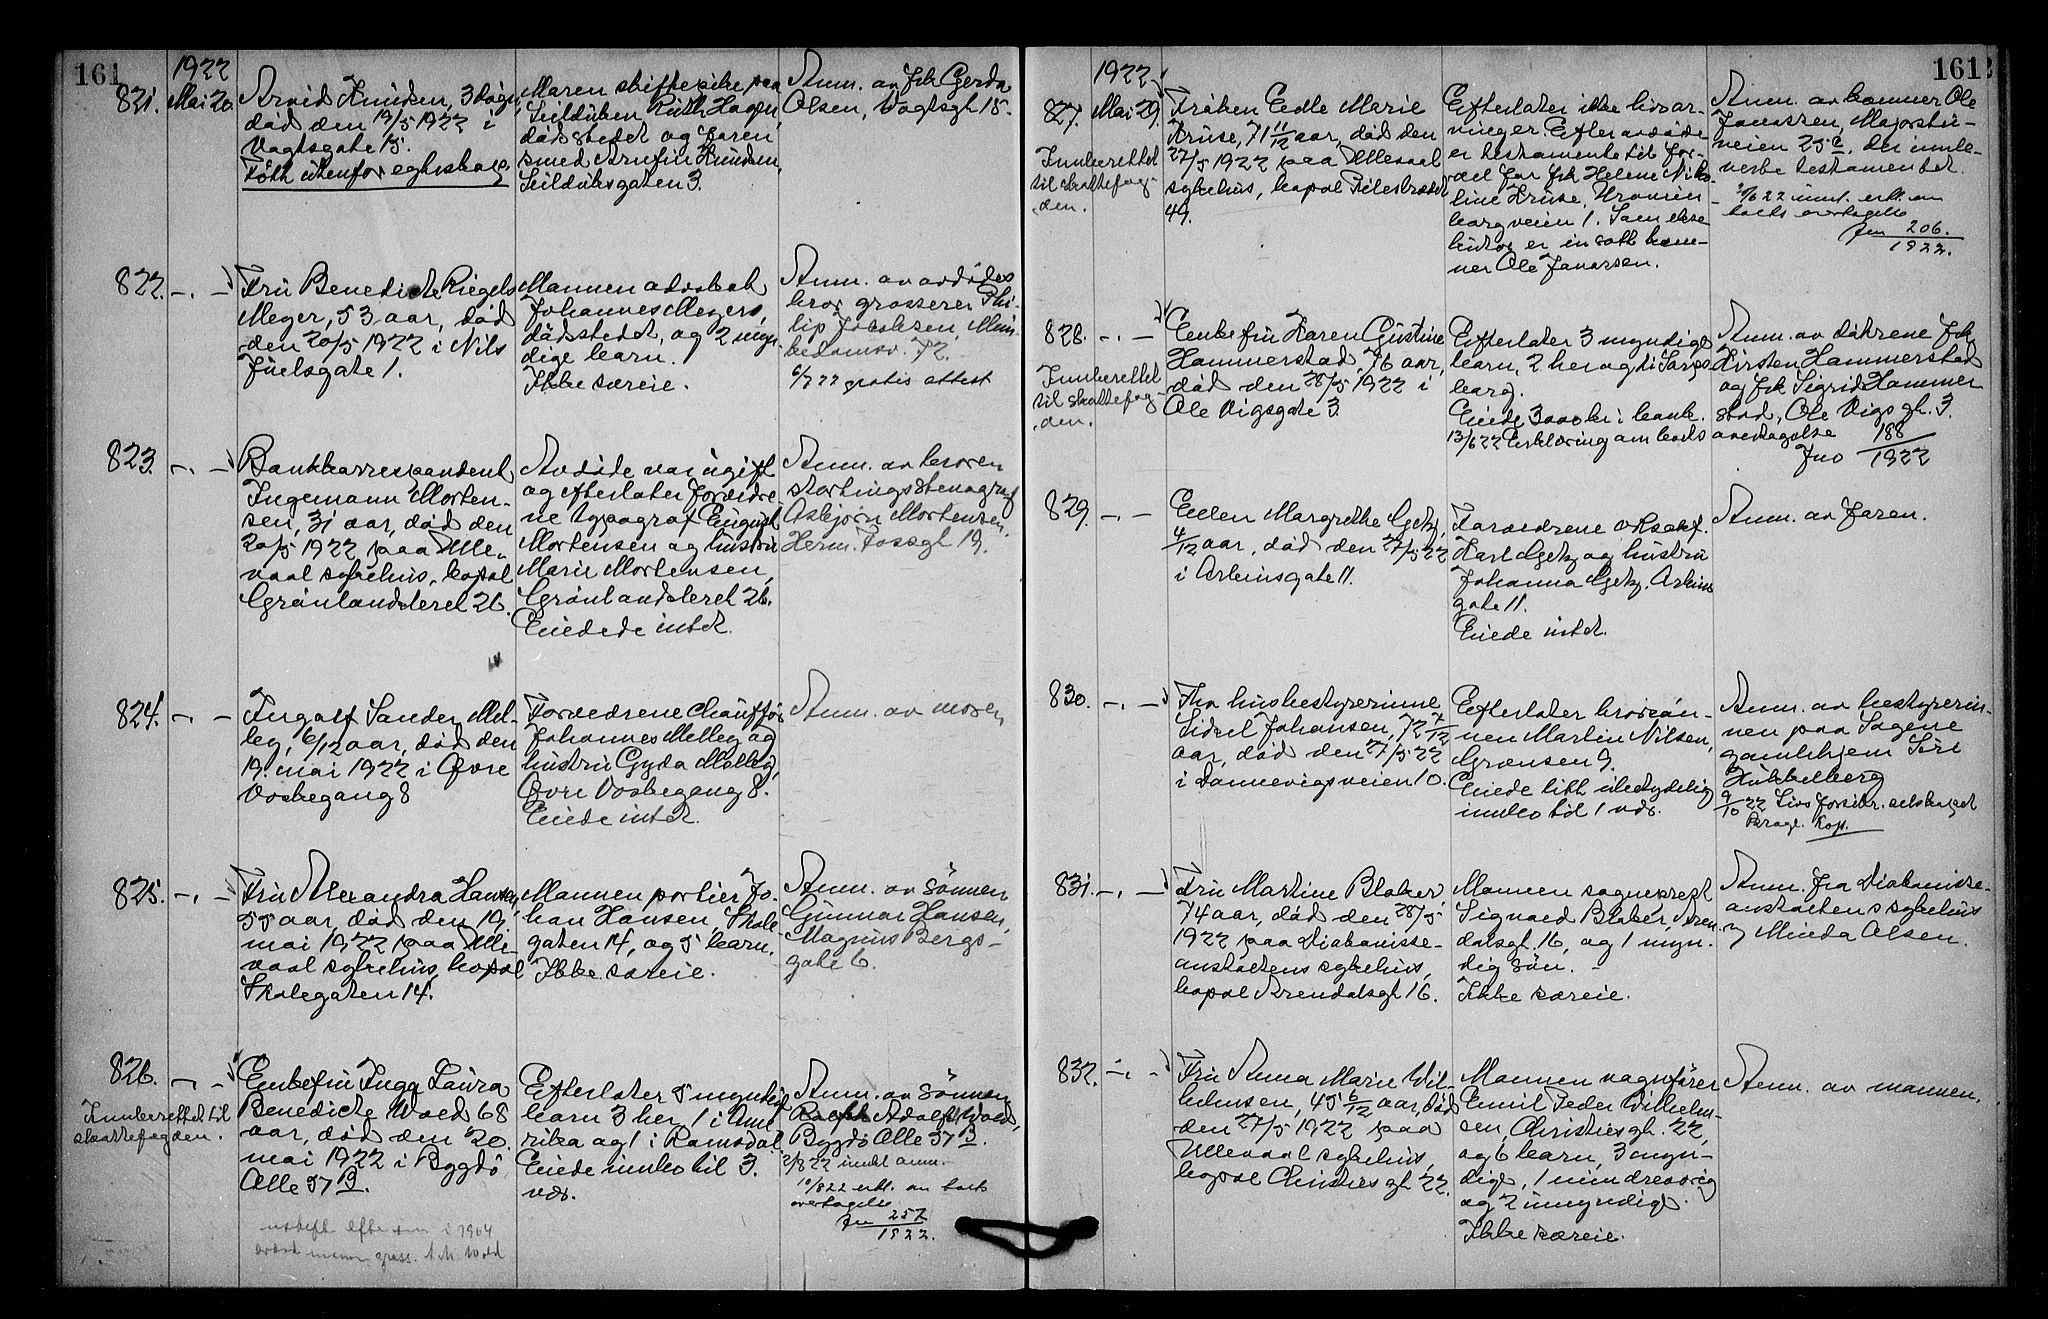 161
1922
821. Mai 20.
Arvid Knudsen, 3 døgn,
død den 19/5 1922 i
Vogtsgate 15.
Født utenfor egteskap.
Moren skiftepike paa
Seilduken Ruth Hagen,
dødsstedet og faren
smed Arnfin Knudsen,
Seilduksgaten 3.
Anm. av frk Gerda
Olsen, Vogtsgt 15.
822. -"-
Fru Benedicte Riegels
Meyer, 53 aar, død
den 20/5 1922 i Nils
Juelsgate 1.
Mannen advokat
Johannes Meyers,
dødsstedet, og 2 myn-
dige barn.
Ikke særeie.
Anm. av avdødes
bror grosserer Phi-
lip Jacobsen,
72.
6/7 22 gratis attest
823. -"-
Bankkorrespondent
Ingemann Morten-
sen, 31 aar, død den
20/5 1922 paa Ulle-
vaal sykehus, bopæl
Grønlandsleret 26.
Avdøde var ugift
og efterlater foreldre-
ne typograf August
Mortensen og hustru
Marie Mortensen,
Grønlandsleret 26.
Eiedede intet.
Anm. av broren
stortingsstenograf
Asbjørn Mortensen,
Herm. Fossgt 19.
824. -"-
Ingolf Sander Mel-
leg, 6/12 aar, død den
19. mai 1922 i Øvre
Vosbegang 8
Foreldrene chauffør
Johannes Melleg og
hustru Gyda Melleg,
Øvre Vosbegang 8.
Eiede intet.
Anm. av moren
825. -"-
Fru Alexandra Hansen,
55 aar, død den 19.
mai 1922 paa Ulle-
vaal sykehus, bopæl
Skolegaten 14.
Mannen portier Jo-
han Hansen, Skole-
gaten 14, og 5 barn.
Ikke særeie.
Anm. av sønnen
Gunnar Hansen,
Magnus Bergs-
gate 6.
826. -"-
Innberettet til
skattefogden.
Enkefru Inga Laura
Benedicte Wold 68
aar, død den 20.
mai 1922 i Bygdø
Alle 57 B.
Efterlater 5 myndige
barn 3 her, 1 i Ame-
rika og 1 i Romsdal.
Eiede innbo til 3.
vds.
Anm. av sønnen
Adolf Wold,
Bygdø Alle 57 B.
2/8 22 innk anm.
10/8 22 erkl. om boets
overtagelse
Jno 257
1922.
i 1904
gross. A.M. Wold
161
1922
827. Mai 29.
Innberettet
til skattefog-
den.
Frøken Edle Marie
Kruse, 71 11/12 aar, død den
27/5 1922 paa Ullevaal
sykehus, bopæl Pilestrædet
49.
Efterlater ikke livsar-
vinger. Efter avdøde
er testamente til for-
del for frk Helene Niko-
line Kruse, Uranien-
borgveien 1. Som ekse-
kutor er insatt kæm-
ner Ole Jonassen.
Anm. av kæmner Ole
Jonassen, Majorstu-
veien 25 c. Der innle-
verte testamentet.
/6 22 innt. erkl. om
boets overtagelse
Jno 206.
1922.
828. -"-
Innberettet
til skattefog-
den.
Enkefru Karen Gustine
Hammerstad, 76 aar,
død den 28/5 1922 i
Ole Vigsgate 3.
Efterlater 3 myndige
barn, 2 her og 1 i Sarps-
borg.
Eiede 3000 kr i bank.
13/6 22 Erklæring om boets overtagelse
Anm. av døtrene frk
Kirsten Hammerstad
og frk Sigrid Hammer-
stad, Ole Vigs gt. 3.
Jno 188
1922
829. -"-
Ellen Margrethe Getz,
4/12 aar, død den 27/5 22
i Arbinsgate 11.
Foreldrene o.r.sakf.
Karl Getz og hustru
Johanna Getz, Arbins-
gate 11.
Eiede intet.
Anm. av faren.
830. -"-
Fhv husbestyrerinne
Sidsel Johansen, 72 7/12
aar, død den 27/5 22
i Dannevigsveien 10.
Efterlater brorsøn-
nen Martin Nilsen,
Grænsen 9.
Eiede litt ubetydelig
innbo til 1 vds.
Anm. av bestyrerin-
nen paa Sagene
gamlehjem Siri
Hubbelberg
9/10 22 Livsforsikr. selskapet
Kop.
831. -"-
Fru Martine Blaker,
74 aar, død den 28/5
1922 paa Diakonisse-
anstaltens sykehus,
bopæl Arendalsgt 16.
Mannen sogneprest
Sigvald Blaker, Aren-
dalsgt. 16, og 1 myn-
dig søn.
Ikke særeie.
Anm. fra Diakonisse-
anstaltens sykehus
v/ Minda Olsen.
832. -"-
Fru Anna Marie Wil-
helmsen, 45 6/12 aar, død
den 27/5 1922 paa
Ullevaal sykehus,
bopæl Christiesgt 22.
Mannen vognfører
Emil Peder Wilhelm-
sen, Christiesgt. 22,
og 6 barn, 3 myn-
dige, 1 mindreaarig
og 2 umyndige.
Ikke særeie.
Anm. av mannen.